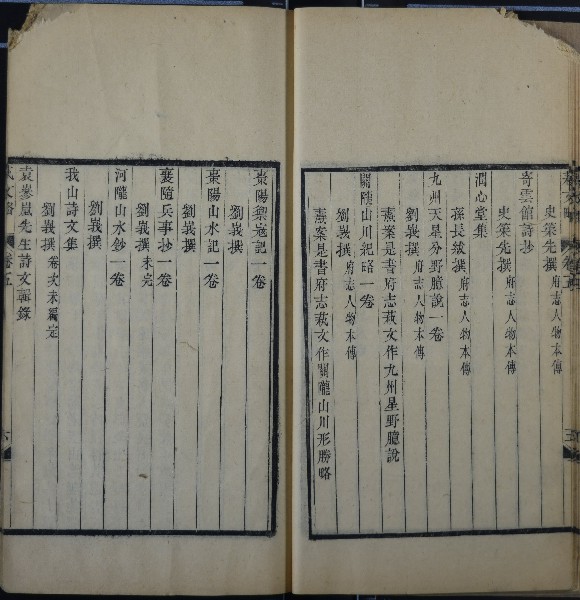 史策先撰府志人物本傳
寄雲館詩抄
史策先撰府志人物本傳
潤心堂集
孫長紱撰府志人物本傳
九州天星分野臆說一卷
劉峩撰府志人物本傳
燾案是書府志藝文作九州星野臆說
關隴山川紀略一卷
劉峩撰府志人物本傳
燾案是書府志藝文作關隴山川形勝略
棗陽禦寇記一卷
劉峩撰
棗陽山水記一卷
劉峩撰
襄隨兵事抄一卷
劉峩撰未完
河隴山水鈔一卷
劉峩撰
我山詩文集
劉峩撰卷次未編定
袁參嵐先生詩文輯錄
藝文略 卷五 六